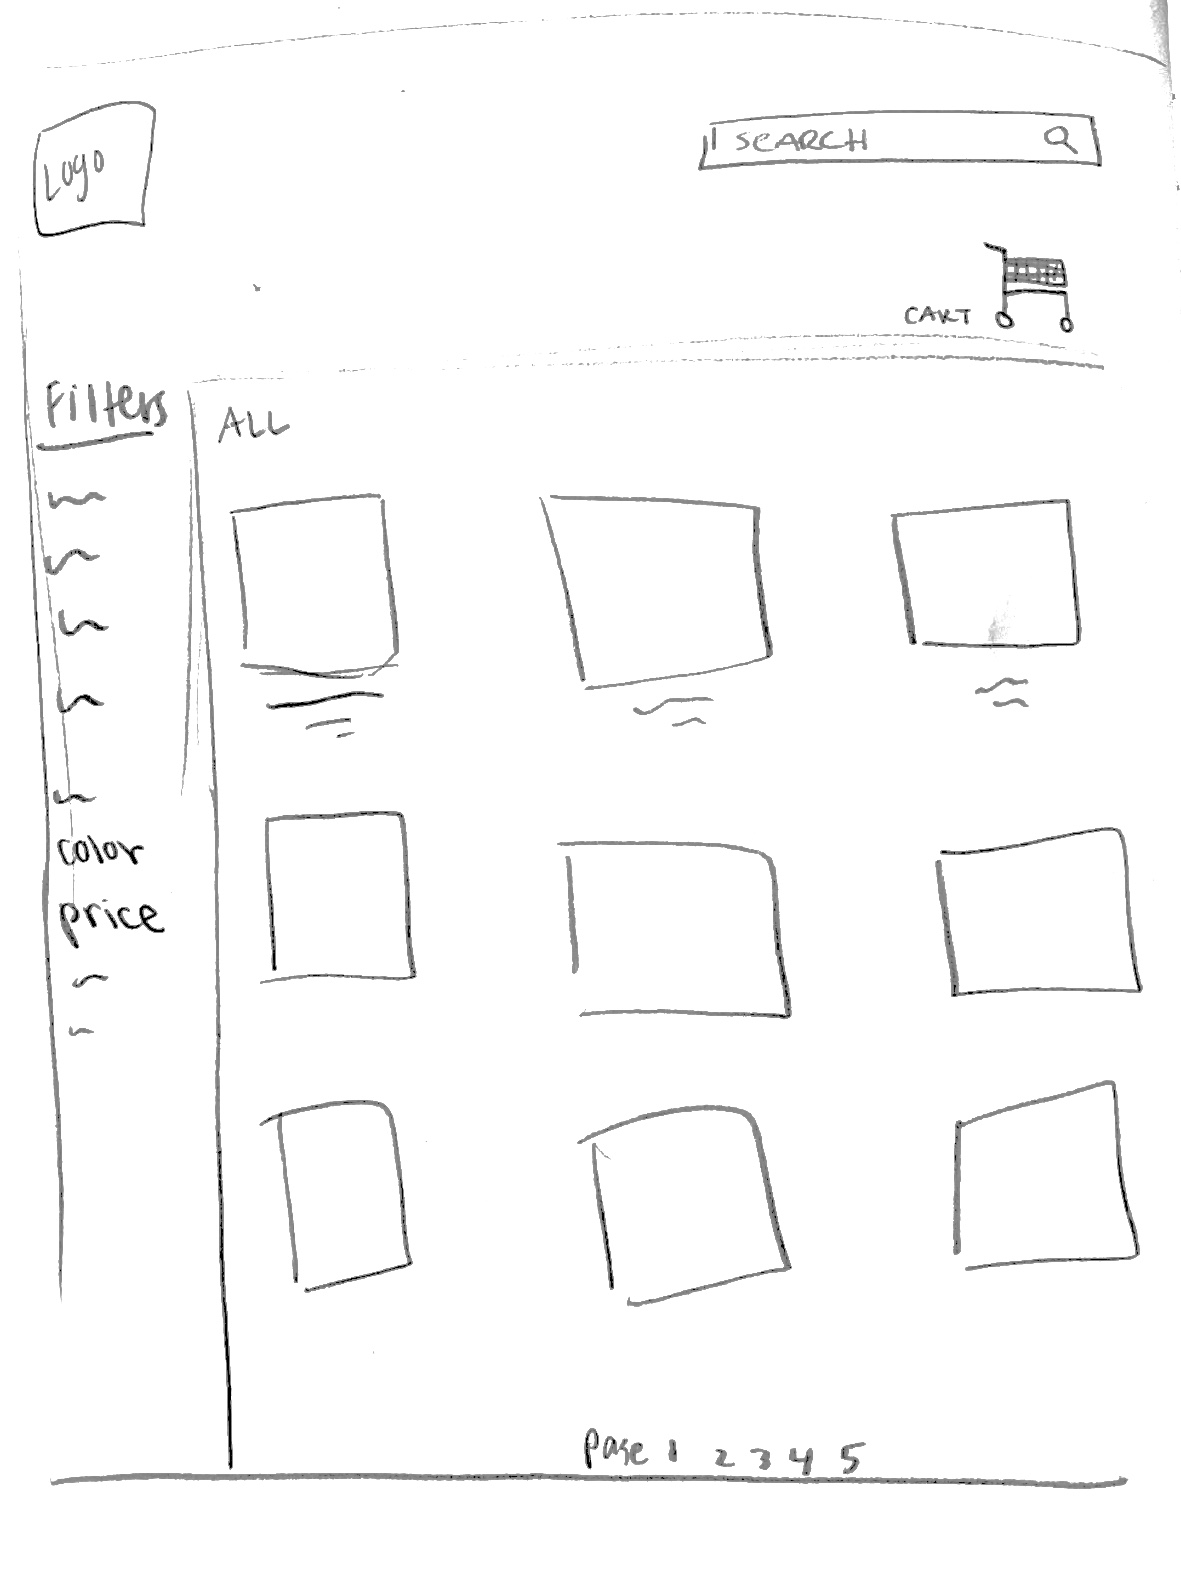 Logo
SEARCH
CART
Filters
ALL
color
price
Page 1 2 3 4 5